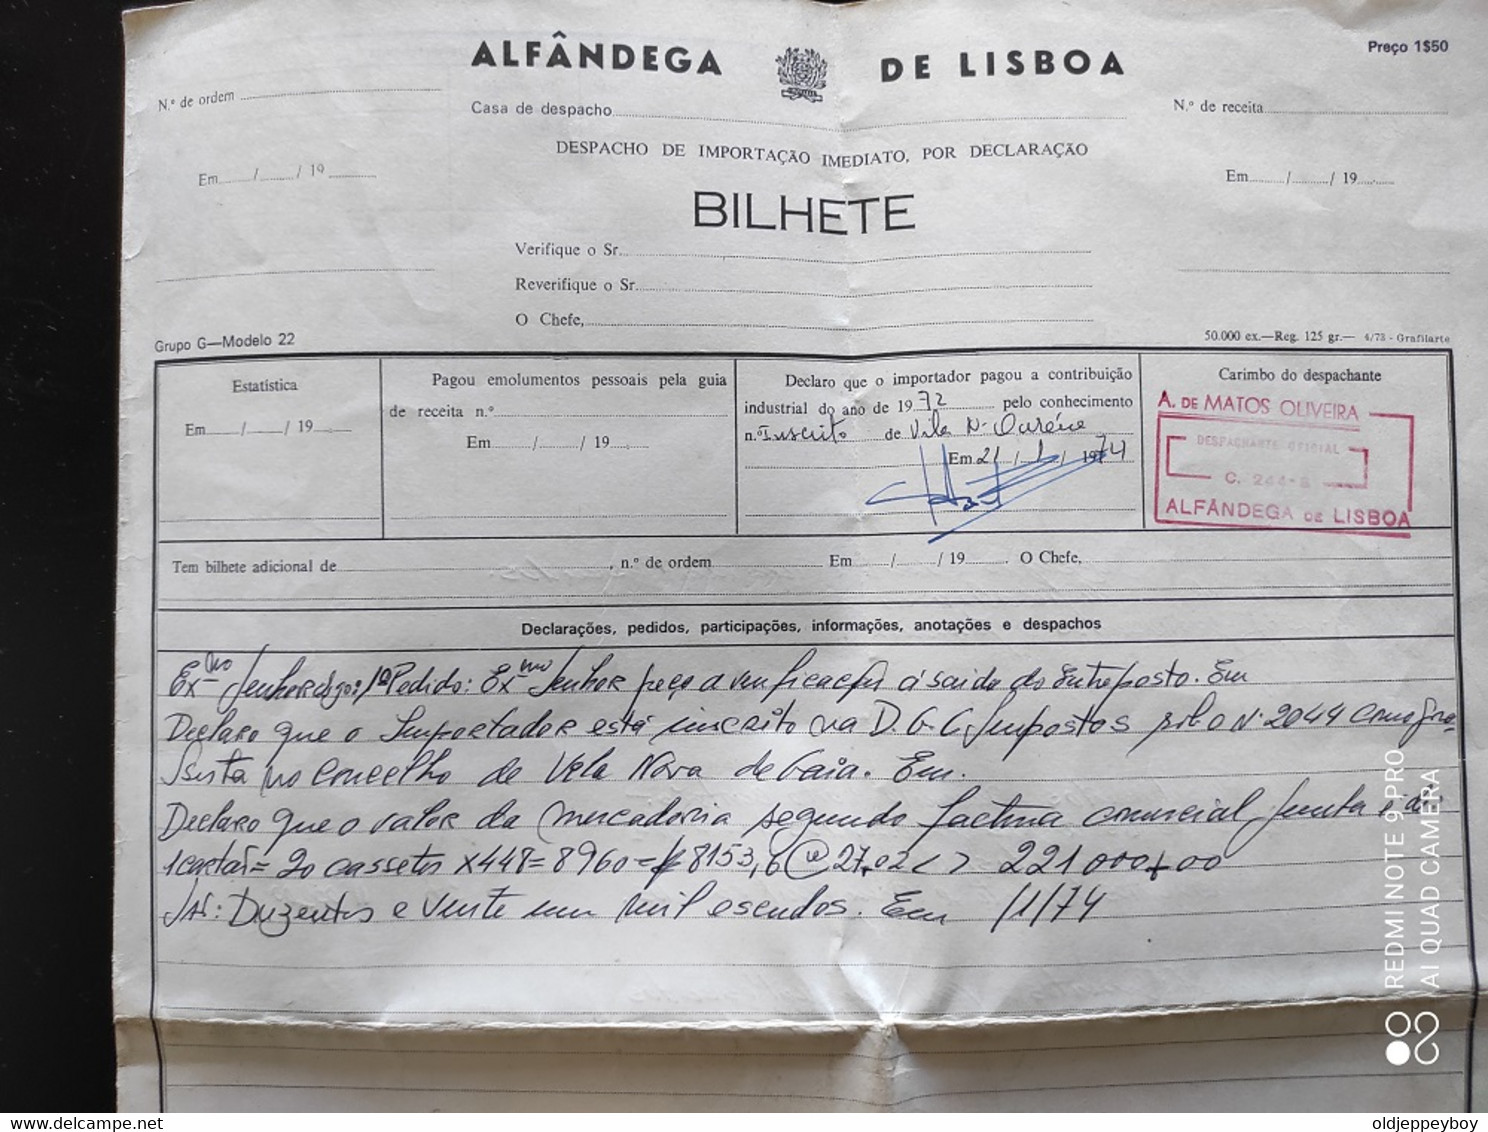 ALFÂNDEGA DE LISBOA
Preço 1$50
N.º de ordem
Casa de despacho
N.º de receita
DESPACHO DE IMPORTAÇÃO IMEDIATO, POR DECLARAÇÃO
Em / / 19
Em / / 19
BILHETE
Verifique o Sr.
Reverifique o Sr.
O Chefe,
Grupo G—Modelo 22
50.000 ex.—Reg. 125 gr.— 4/73 - Grafilarte
Estatística
Em / / 19
Pagou emolumentos pessoais pela guia
de receita n.º
Em / / 19
Declaro que o importador pagou a contribuição
industrial do ano de 1972 pelo conhecimento
n.º Inscrito de Vila N.
Em 21 / 1 / 1974
Carimbo do despachante
A. DE MATOS OLIVEIRA
DESPACHANTE OFICIAL
C. 244-
ALFÂNDEGA DE LISBOA
Tem bilhete adicional de , n.º de ordem Em / / 19 O Chefe,
Declarações, pedidos, participações, informações, anotações e despachos
Exmo Senhor 1º Pedido: Exmo Senhor peço a verificação á saida do Entreposto. Em
Declaro que o Importador está inscrito na D. G. C. Impostos N. 2044
no Concelho de Vila Nova de Gaia. Em.
Declaro que o valor da mercadoria segundo factura comercial junta é de
20 cassetes x448=8960= 8153,6 @ 27.02 <> 221000+00
Duzentos e vinte um mil escudos. Em /1/74
REDMI NOTE 9 PRO
AI QUAD CAMERA
oldjeppeyboy